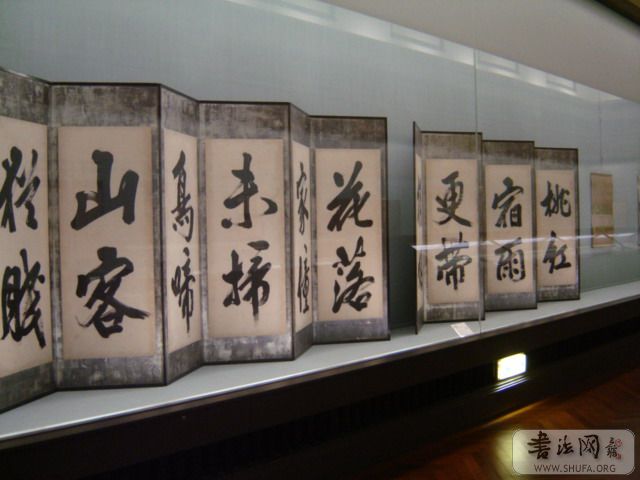 桃紅
宿雨
更帶
花落
家僮
未掃
鳥啼
山客
猶眠
書法网
WWW.SHUFA.ORG